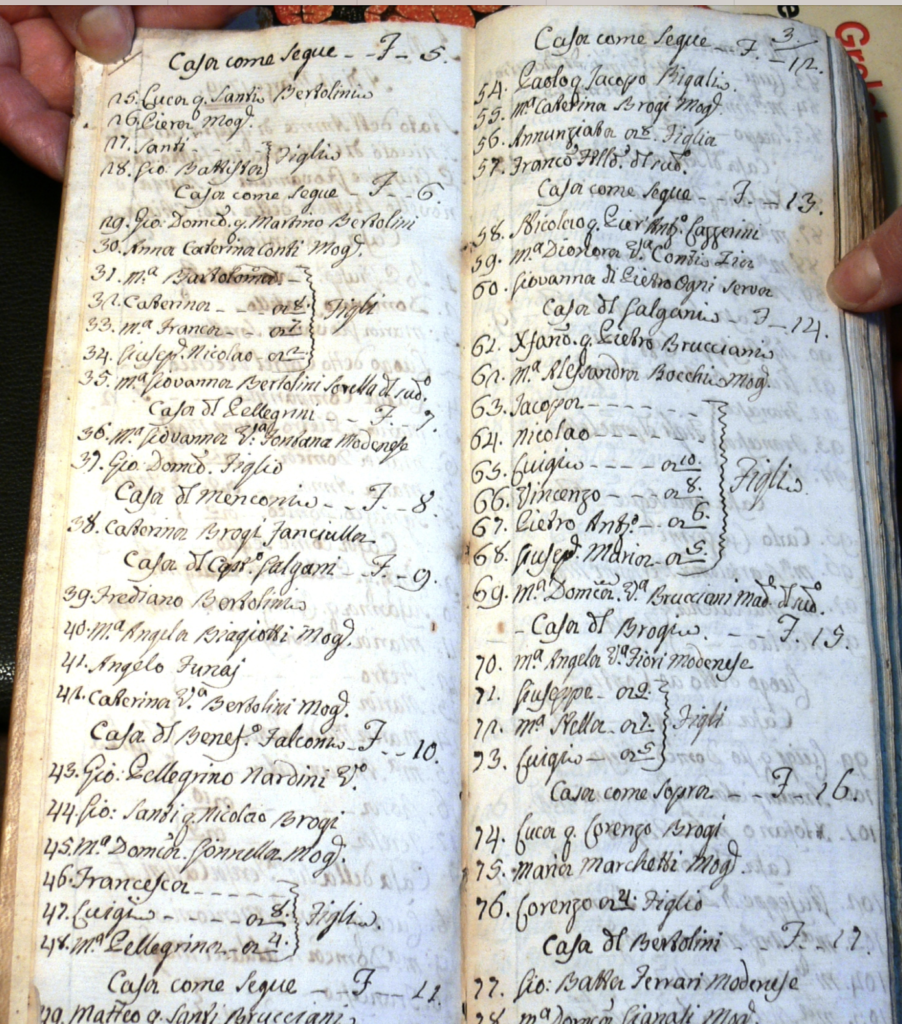 Casa come segue - F - 5.
25. Luca q. Santi Bertolini
26. Ciera Mog.
27. Santi
28. Gio Battista } Figli
Casa come segue F - 6.
29. Gio: Domco. q. Martino Bertolini
30. Anna Caterina Conti Mog.
31. Ma. Bartolomea
32. Caterina - - an 8.
33. Ma. Franca an 7
34. Giusep. Nicolao an 2 } Figli
35. Ma. Giovanna Bertolini Sorella dl sud.o
Casa dl Pellegrini - F 7.
36. Ma. Giovanna Va. Fontana Modenese
37. Gio. Domco. Figlio
Casa dl Menconi F - 8.
38. Caterina Brogi Fanciulla
Casa dl Galgani - F - 9.
39. Frediano Bertolini
40. Ma. Angela Biagiotti Mog.
41. Angelo Funai
42. Caterina Va. Bertolini Mog.
Casa dl Benef.o Falconi - F - 10.
43. Gio: Pellegrino Nardini Vo.
44. Gio: Santi q. Nicolao Brogi
45. Ma. Domca. Gonnella Mog.
46. Francesca - - -
47. Luigi - - an 8.
48. Ma. Pellegrina - an 4. } Figli
Casa come segue - F 11.
49. Matteo q. Santi Brucciani
3
Casa come segue - F - 12.
54. Paolo q. Jacopo Bigali
55. Ma. Caterina Brogi Mog.
56. Annunziata an 8. Figlia
57. Franco. dl sud.o
Casa come segue - F - 13.
58. Nicolao q. Pier Anto. Cazzerini
59. Ma. Dionora Va. Conti Zia
60. Giovanna di Pietro Ogni serva
Casa dl Galgani F - 14.
61. Xfano. q. Pietro Brucciani
62. Ma. Alessandra Bocchi Mog.
63. Jacopo - - - -
64. Nicolao - - - -
65. Luigi - - - - an 10.
66. Vincenzo - an 8.
67. Pietro Anto. - an 6.
68. Giusep. Maria - an 5. } Figli
69. Ma. Domca. Va. Brucciani Mad. dl sud.o
- Casa dl Brogi - F. 15.
70. Ma. Angela Va. Fiori Modenese
71. Giuseppe - an 9.
72. Ma. Stella - an 7.
73. Luigi - an 5 } Figli
Casa come sopra - - F. 16.
74. Luca q. Lorenzo Brogi
75. Maria Marchetti Mog.
76. Lorenzo an 4. Figlio
Casa dl Bertolini F. 17.
77. Gio: Batta Ferrari Modenese
78. Ma. Domca. Mog.